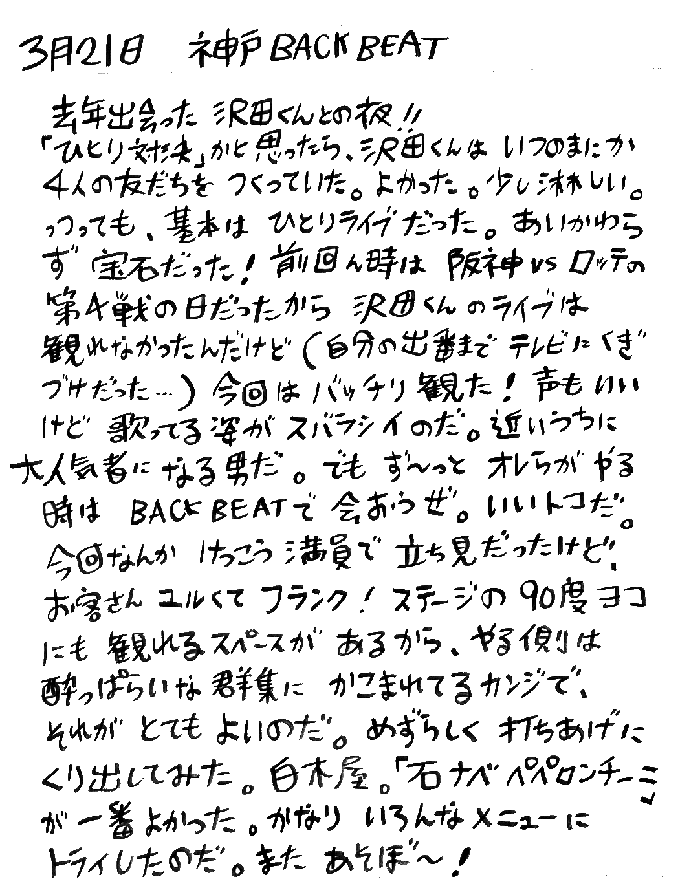 3月21日 神戸 BACK BEAT
去年出会った 沢田くんとの夜!!
「ひとり対決」かと思ったら、沢田くんは いつのまにか
4人の友だちを つくっていた。よかった。少し淋しい。
っつっても、基本は ひとりライブだった。あいかわら
ず 宝石だった! 前回ん時は 阪神 vs ロッテの
第4戦の日だったから 沢田くんのライブは
観れなかったんだけど (自分の出番まで テレビに くぎ
づけだった…) 今回は バッチリ 観た! 声も いい
けど 歌ってる 姿が スバラシイのだ。近いうちに
大人気者に なる男だ。でも ず〜っと オレらが やる
時は BACK BEATで 会おうぜ。いいトコだ。
今回なんか けっこう 満員で 立ち見だったけど、
お客さん ユルくて フランク! ステージの 90度 ヨコ
にも 観れるスペースが あるから、やる側は
酔っぱらいな 群集に かこまれてるカンジで、
それが とても よいのだ。めずらしく 打ちあげに
くり出してみた。白木屋。「石ナベ ペペロンチーニ」
が 一番よかった。かなり いろんなメニューに
トライしたのだ。また あそぼ〜!